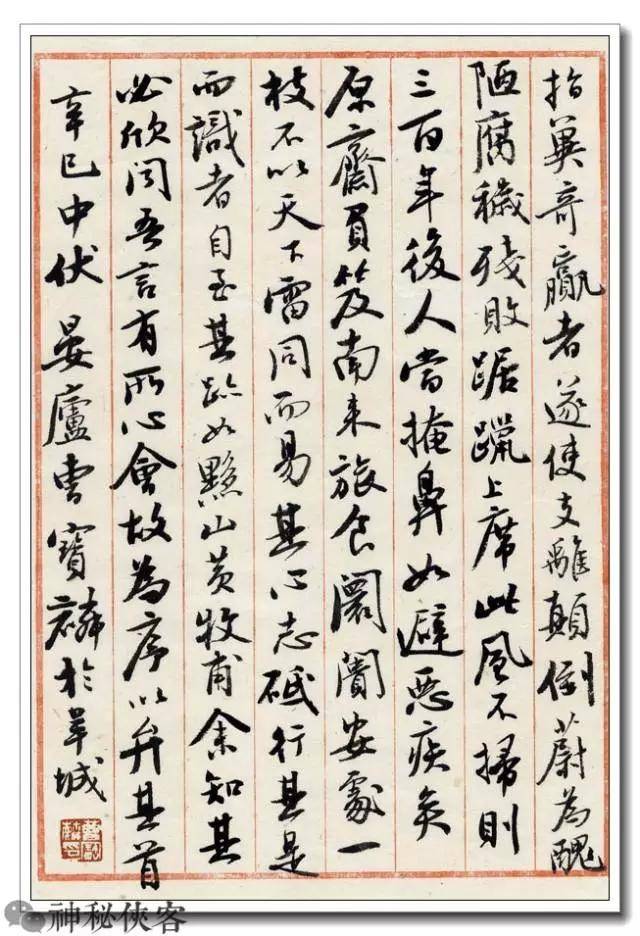 指異奇贏者遂使支離顛倒蔚為醜
陋腐穢殘敗踞躐上席此風不掃則
三百年後人當掩鼻如避惡疾矣
原齋負笈南來旅食闤闠安處一
枝不以天下雷同而易其心志砥行其是
而識者自至其跡如黟山黃牧甫余知其
必欣聞吾言有所心會故為序以弁其首
辛巳中伏 晏廬曹寶麟於羊城
神秘俠客